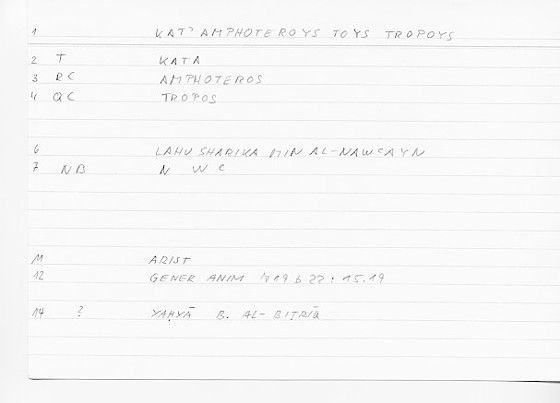 1 KAT' AMPHOTEROYS TOYS TROPOYS
2 T KATA
3 RC AMPHOTEROS
4 QC TROPOS
6 LAHU SHARIKA MIN AL-NAWCAYN
7 NB N W C
11 ARIST
12 GENER ANIM 719 b 22 : 15.19
14 ? YAḤYĀ B. AL-BIṬRĪQ